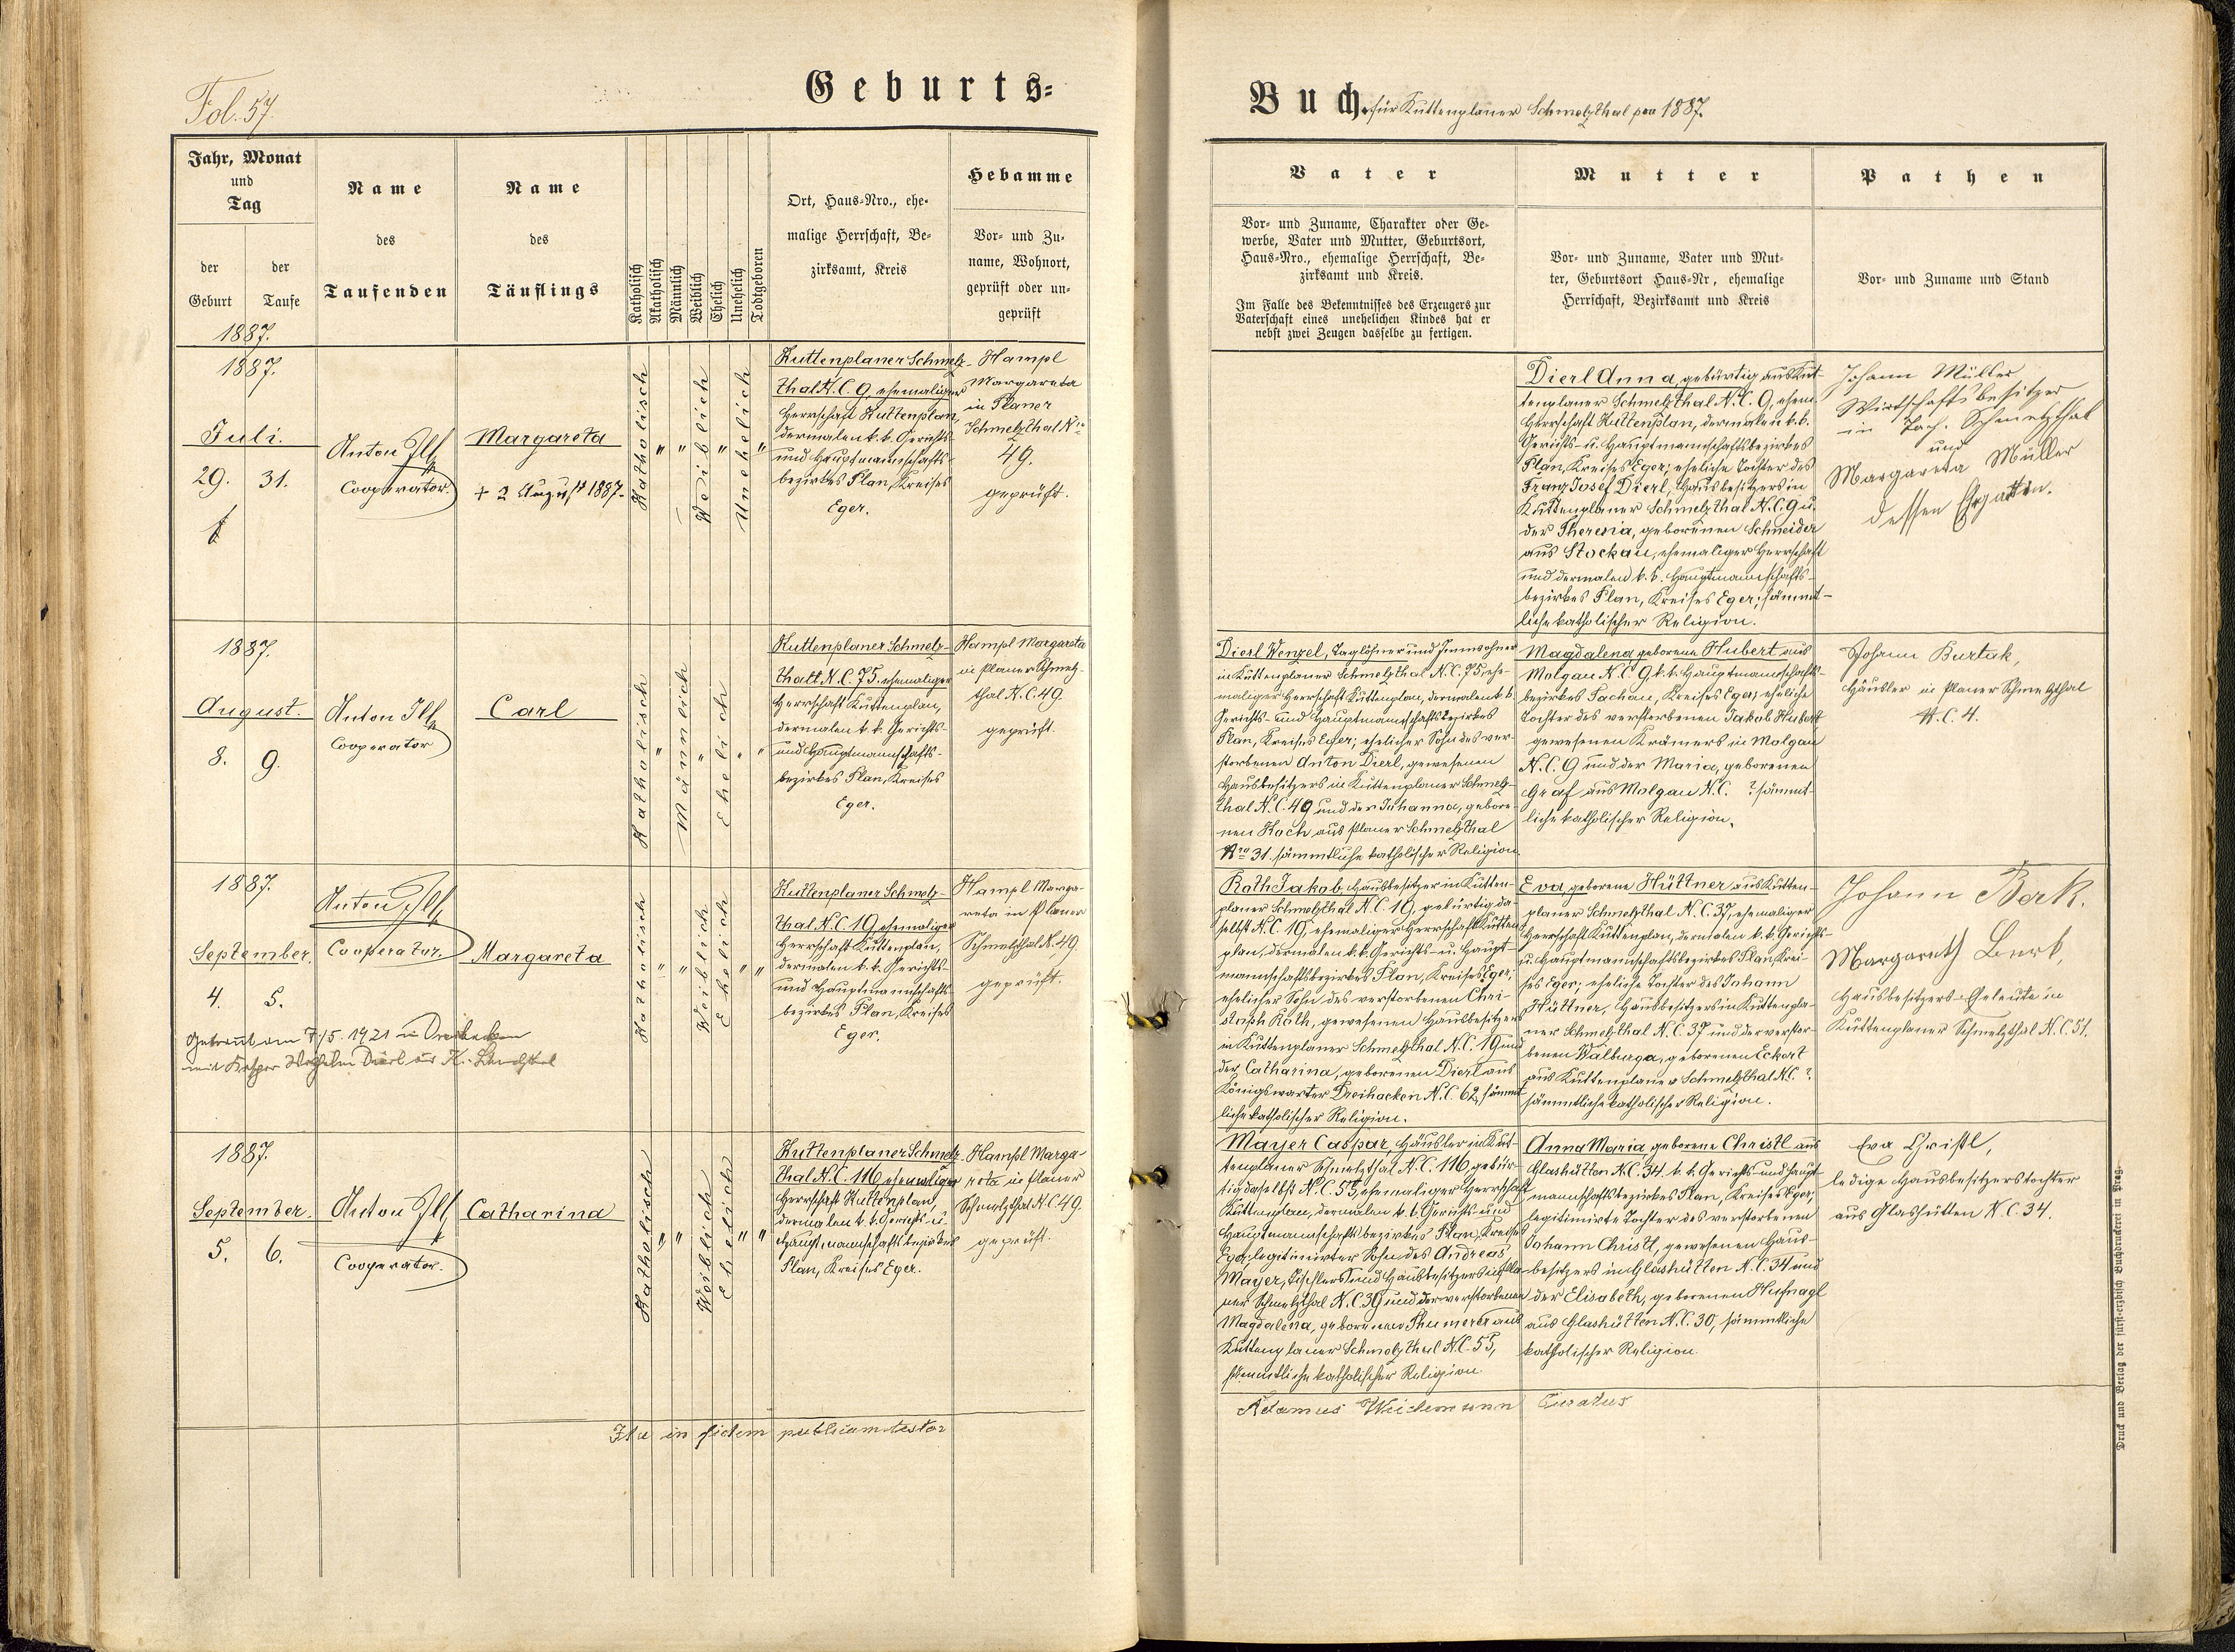 Fol. 57.
Geburts-
Buch für Kuttenplaner Schmelzthal pro 1887.
Jahr, Monat
und
Tag
der
Geburt
der
Taufe
Name
des
Taufenden
Name
des
Täuflings
Katholisch
Akatholisch
Männlich
Weiblich
Ehelich
Unehelich
Todtgeboren
Ort, Haus-Nro., ehe-
malige Herrschaft, Be-
zirksamt, Kreis
Hebamme
Vor- und Zu-
name, Wohnort,
geprüft oder un-
geprüft
Vater
Vor- und Zuname, Charakter oder Ge-
werbe, Vater und Mutter, Geburtsort,
Haus-Nro., ehemalige Herrschaft, Be-
zirksamt und Kreis.
Im Falle des Bekenntnisses des Erzeugers zur
Vaterschaft eines unehelichen Kindes hat er
nebst zwei Zeugen dasselbe zu fertigen.
Mutter
Vor- und Zuname, Vater und Mut-
ter, Geburtsort Haus-Nr, ehemalige
Herrschaft, Bezirksamt und Kreis
Pathen
Vor- und Zuname und Stand
1887.
1887.
Juli.
29. 31.
Anton Illg
Cooperator.
Margareta
+ 2 August 1887.
Katholisch " " Weiblich " Unehelich "
Kuttenplaner Schmelz-
thal N.C. 9, ehemaliger
Herrschaft Kuttenplan,
dermalen k. k. Gerichts-
und Hauptmannschafts-
bezirkes Plan, Kreises
Eger.
Hampl
Margareta
in Planer
Schmelzthal Nro
49.
geprüft.
Dierl Anna, gebürtig aus Kut-
tenplaner Schmelzthal N.C. 9, ehem.
Herrschaft Kuttenplan, dermalen k.k.
Gerichts- u. Hauptmannschaftsbezirkes
Plan, Kreises Eger; eheliche Tochter des
Franz Josef Dierl, Hausbesitzers in
Kuttenplaner Schmelzthal N.C. 9 u.
der Theresia, geborenen Schneider
aus Stockau, ehemaliger Herrschaft
und dermalen k. k. Hauptmannschafts-
bezirkes Plan, Kreises Eger; sämmt-
liche katholischer Religion.
Johann Müller
Wirtschaftsbesitzer
in Tach. Schmelzthal
und
Margareta Müller
dessen Ehgattin.
1887.
August.
8. 9.
Anton Illg
Cooperator
Carl
Katholisch " Männlich " Ehelich " "
Kuttenplaner Schmelz-
thal N.C. 75. ehemaliger
Herrschaft Kuttenplan,
dermalen k. k. Gerichts-
und Hauptmannschafts-
bezirkes Plan, Kreises
Eger.
Hampl Margareta
in Planer Schmelz-
thal N.C. 49.
geprüft.
Dierl Wenzel, Taglöhner und Innwohner
in Kuttenplaner Schmelzthal N.C. 75, ehe-
maliger Herrschaft Kuttenplan, dermalen k.k.
Gerichts- und Hauptmannschaftsbezirkes
Plan, Kreises Eger; ehelicher Sohn des ver-
storbenen Anton Dierl, gewesenen
Hausbesitzers in Kuttenplaner Schmelz-
thal N.C. 49 und der Johanna, gebore-
nen Koch aus Planer Schmelzthal
Nro 31. sämmtliche katholischer Religion.
Magdalena geborene Hubert aus
Molgau N.C. 9, k. k. Hauptmannschafts-
bezirkes Tachau, Kreises Eger, eheliche
Tochter des verstorbenen Jakob Hubert
gewesenen Krämers in Molgau
N.C. 9 und der Maria, geborenen
Graf aus Molgau N.C. ? sämmt-
liche katholischer Religion.
Johann Burtak,
Häusler in Planer Schmelzthal
N.C. 4.
1887.
September.
4. 5.
Anton Illg
Cooperator.
Margareta
Katholisch " " Weiblich Ehelich " "
Kuttenplaner Schmelz-
thal N.C. 19, ehemaliger
Herrschaft Kuttenplan,
dermalen k. k. Gerichts-
und Hauptmannschafts-
bezirkes Plan, Kreises
Eger.
Hampl Marga-
reta in Planer
Schmelzthal N. 49.
geprüft.
Getraut am 7/5. 1921 in Dreihacken
mit Dierl aus
Roth Jakob, Hausbesitzer in Kutten-
planer Schmelzthal N.C. 19, gebürtig da-
selbst N.C. 19, ehemaliger Herrschaft Kutten-
plan, dermalen k.k. Gerichts- u. Haupt-
mannschaftsbezirkes Plan, Kreises Eger;
ehelicher Sohn des verstorbenen Chri-
stoph Roth, gewesenen Hausbesitzers
in Kuttenplaner Schmelzthal N.C. 19 und
der Catharina, geborenen Dierl aus
Königswarter Dreihacken N.C. 62, sämmt-
liche katholischer Religion.
Eva geborene Hüttner aus Kutten-
planer Schmelzthal N.C. 37, ehemaliger
Herrschaft Kuttenplan, dermalen k. k. Gerichts-
u. Hauptmannschaftsbezirkes Plan, Krei-
ses Eger; eheliche Tochter des Johann
Hüttner, Hausbesitzers in Kuttenpla-
ner Schmelzthal N.C. 37 und der verstor-
benen Walburga, geborenen Eckert
aus Kuttenplaner Schmelzthal N.C. ?
sämmtliche katholischer Religion.
Johann Berk.
Margareth Berk,
Hausbesitzers-Eheleute in
Kuttenplaner Schmelzthal N.C. 51.
1887.
September.
5. 6.
Anton Illg
Cooperator.
Catharina
Katholisch " " Weiblich Ehelich " "
Kuttenplaner Schmelz-
thal N.C. 116, ehemaliger
Herrschaft Kuttenplan,
dermalen k. k. Gerichts- u.
Hauptmannschaftsbezirkes
Plan, Kreises Eger.
Hampl Marga-
reta in Planer
Schmelzthal N.C. 49.
geprüft.
Mayer Caspar, Häusler in Kut-
tenplaner Schmelzthal N.C. 116, gebür-
tig daselbst N.C. 55, ehemaliger Herrschaft
Kuttenplan, dermalen k. k. Gerichts- und
Hauptmannschaftsbezirkes Plan, Kreises
Eger; legitimirter Sohn des Andreas
Mayer, Tischlers und Hausbesitzers in Pla-
ner Schmelzthal N.C. 39 und der verstorbenen
Magdalena, geborenen Thumerer aus
Kuttenplaner Schmelzthal N.C. 55,
sämmtliche katholischer Religion.
Anna Maria, geborene Christl aus
Glashütten N.C. 34. k. k. Gerichts- und Haupt-
mannschaftsbezirkes Plan, Kreises Eger;
legitimirte Tochter des verstorbenen
Johann Christl, gewesenen Haus-
besitzers in Glashütten N.C. 34 und
der Elisabeth, geborenen Hufnagl
aus Glashütten N.C. 30, sämmtliche
katholischer Religion.
Eva Christl,
ledige Hausbesitzerstochter
aus Glashütten N.C. 34.
Ita in fidem publicam testor
Adamus Weidemann Curatus
Druck und Verlag der fürst-erzbisch Buchdruckerei in Prag.